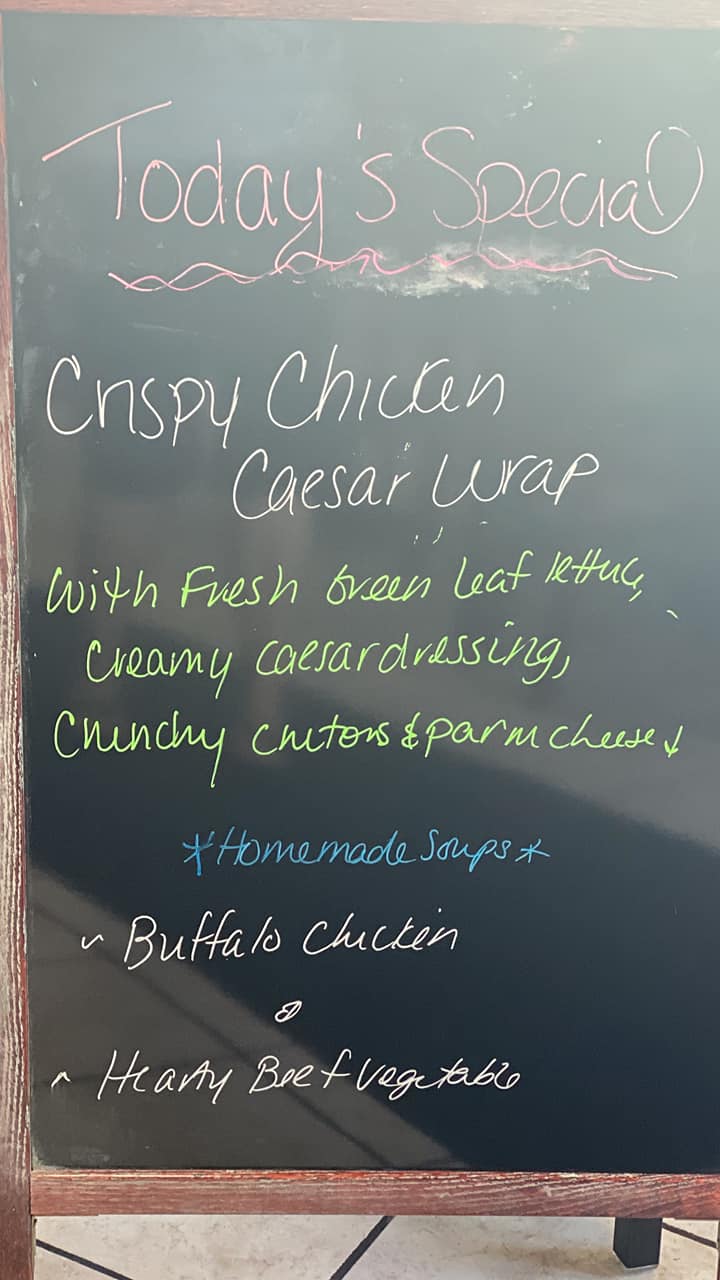 Today's Special
Crispy Chicken
Caesar Wrap
with Fresh Green Leaf lettuce,
Creamy caesar dressing,
Crunchy crutons & parm cheese!
*Homemade Soups*
~ Buffalo Chicken
&
~ Hearty Beef vegetable